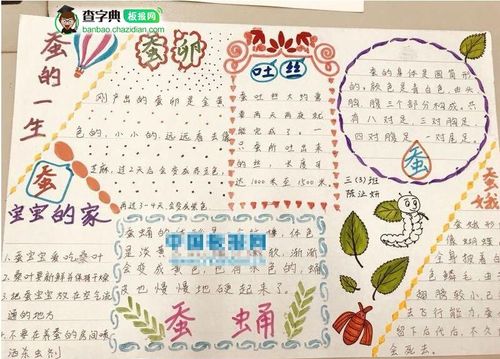 查字典 板报网
banbao.chazidian.com
蚕的一生
蚕卵
刚产出的蚕卵是金黄
色的，小小的，远远看去像
芝麻，过2天后会变成
再过3-4天，会变成
吐丝
蚕吐丝大约需
要两天两夜就
能完成了。一
只蚕所吐出来
的丝，长度可
达1000米至1500米。
蚕的身体是圆筒形
的，颜色是青白色，由头
胸，腹三个部分构成，共
有八对足，三对胸足，
四对腹足，一对尾足。
蚕
三(3)班
陈泣妍
蚕
宝宝的家
1.蚕宝宝爱吃桑叶
2.桑叶要新鲜并保持干燥
3.把蚕宝宝放在空气流
通的地方
4.不要在养蚕的房间喷
洒杀虫剂
中国板报网
蚕蛹的
像，体色
是淡黄
软，渐渐
会变成黄色，
的蛹
皮也慢慢地硬起来了。
蚕 蛹
蚕蛾
蚕蛾形
像蝴蝶
全身披着白
色鳞毛，由
翅膀较小已
去飞行能力，蚕
留下后代后，不久
会死去。